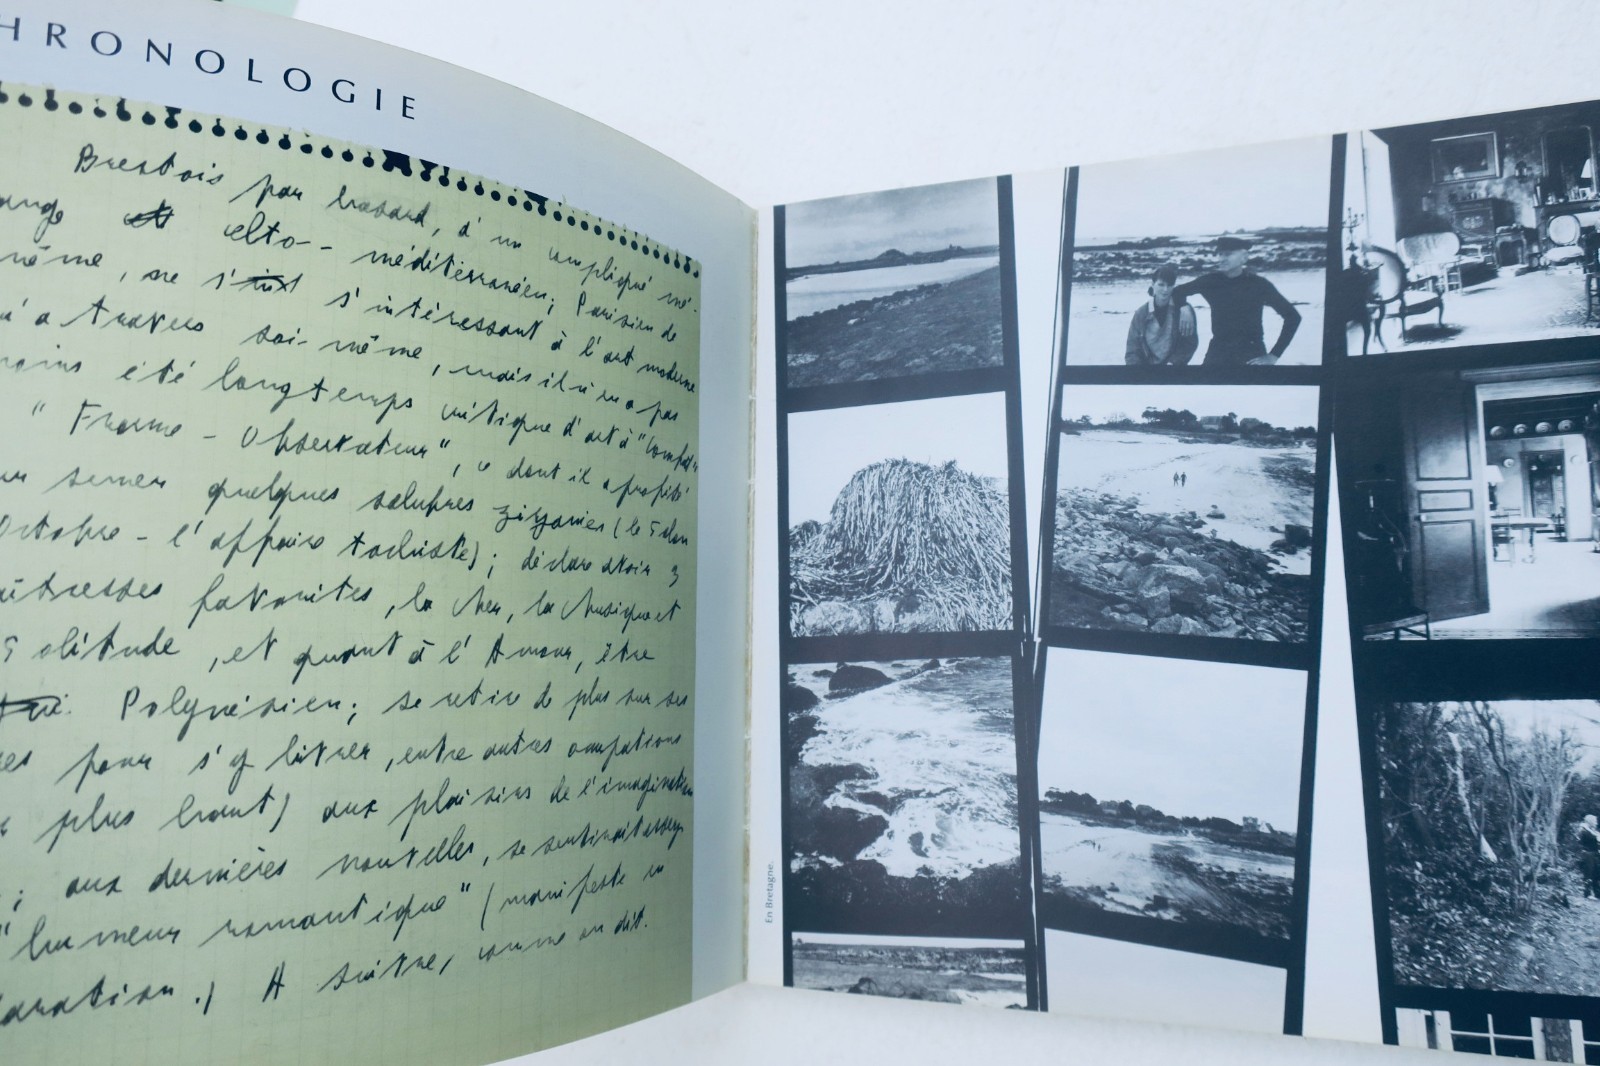 HRONOLOGIE
Brestois par hasard, d'un compliqué mé-
ange celto- méditerranéen; Parisien de
même, ne s' s'intéressant à l'art moderne
u'a travers soi-même, mais il n'en a pas
moins été longtemps critique d'art à "Combat"
"France-Observateur", ce dont il a profité
ur semer quelques salubres zizanies (le Salon
Octobre - l'affaire tachiste); déclare avoir 3
aîtresses favorites, la Mer, la Musique et
Solitude, et quant à l'Amour, être
Polynésien; se retire de plus sur ses
es pour s'y livrer, entre autres occupations
plus haut) aux plaisirs de l'imagination
; aux dernières nouvelles, se sentirait assez
"humeur romantique" (manifeste en
aration.) A suivre, comme on dit.
En Bretagne.